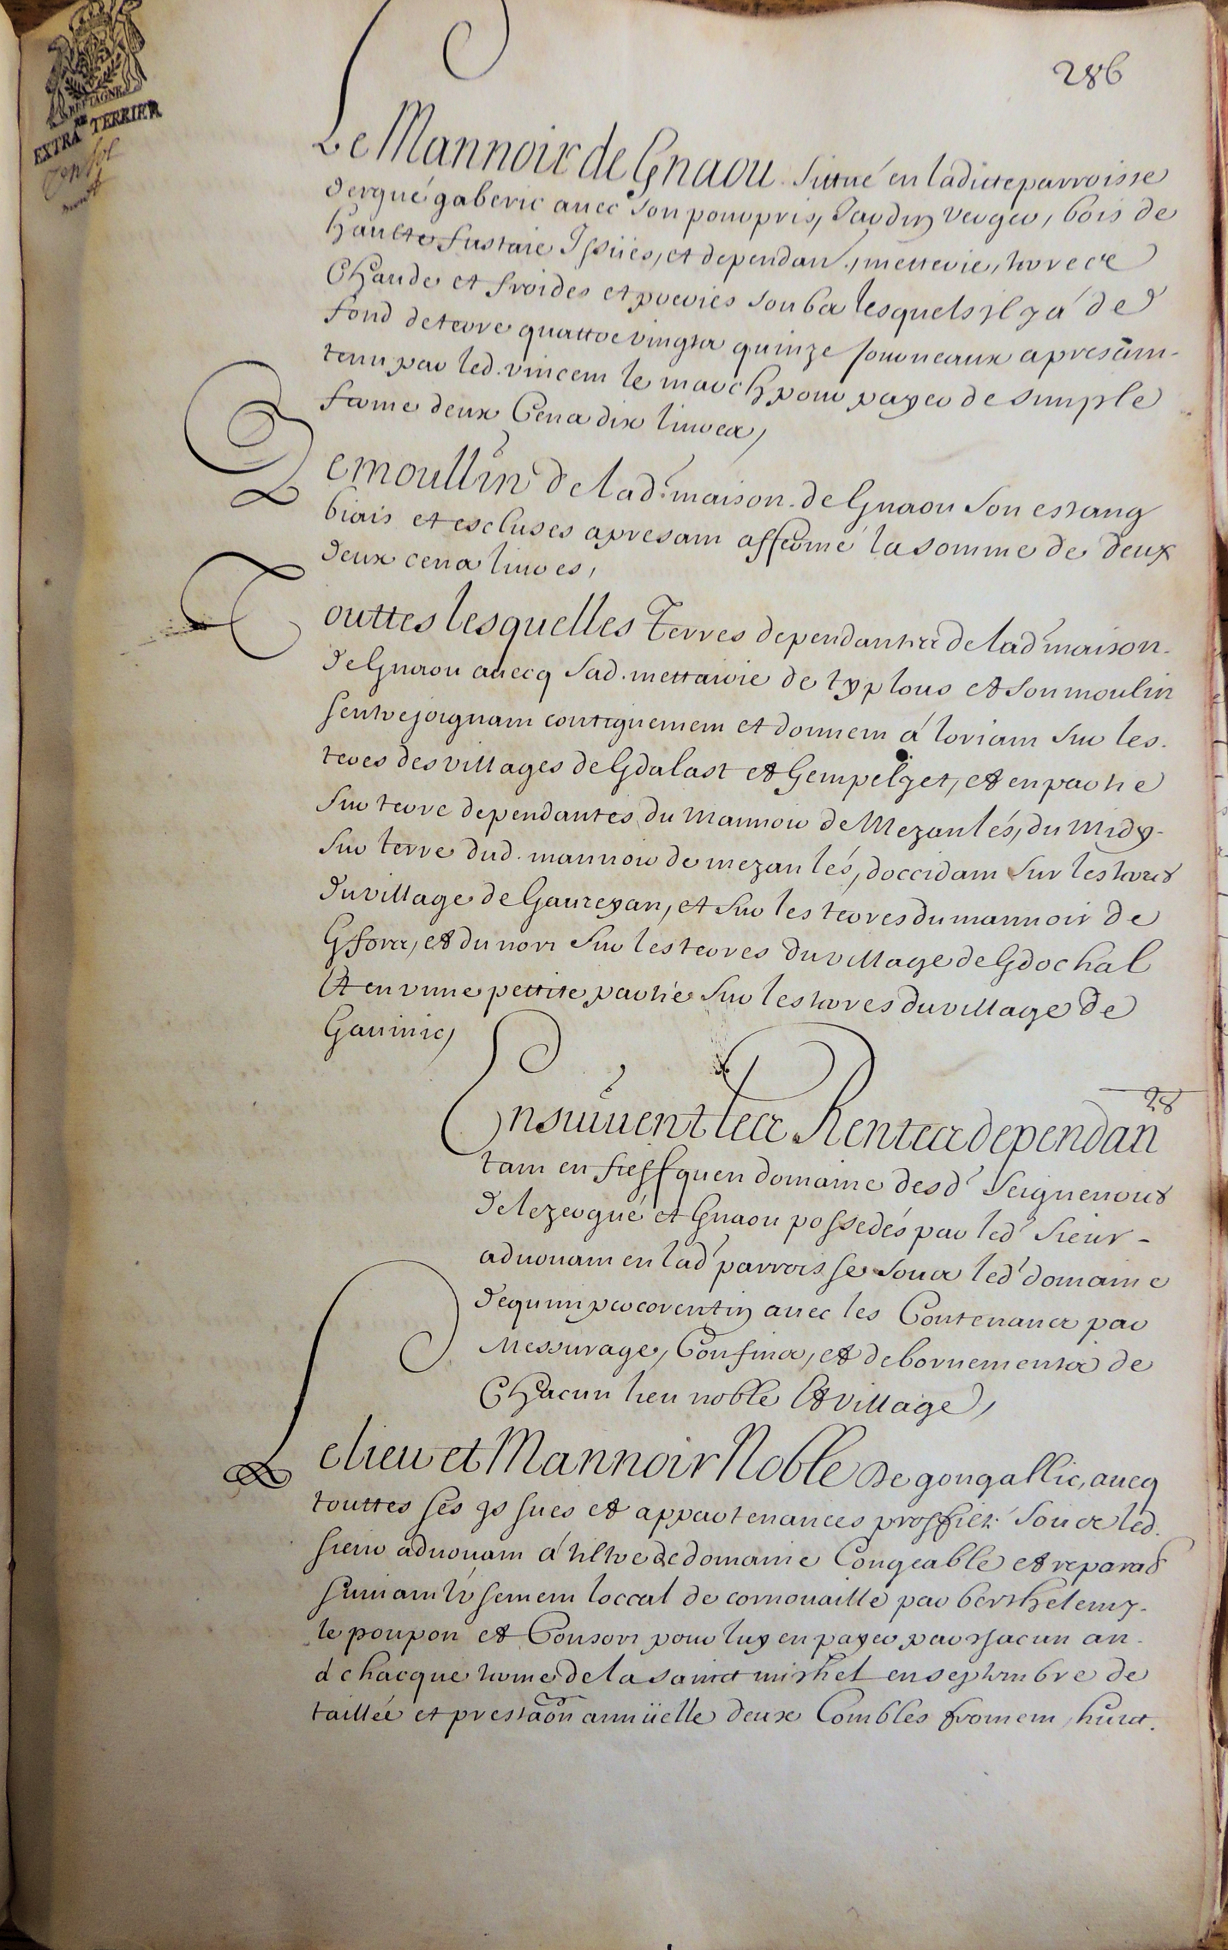 286
BRETAGNE
EXTRA RE TERRIER
Le Mannoir de Gnaou situé en ladicte parroisse
dergué gaberic avec son pourpris, Jardin verger, bois de
haulte fustaie Issües, et dependan., metterie, terres
Chaude et froides et preries soubs lesquels il y a de
fond de terre quattre vingts quinze journeaux apresam-
tenu par led. vincent le march pour payer de simple
ferme deux Cents dix livres,
Le moullin de lad. maison de Gnaou son estang
biais et escluses apresant affermé la somme de deux
deux cents livres,
Touttes lesquelles Terres dependantes de lad maison
de Gnaou avecq sad. mettairie de typlous et son moulin
sentrejoignant contiguement et donnent á loriant sur les
terres des villages de Gdalast et Gempelget, et en partie
sur terre dependantes du Mannoir de Mezanlés, du Midy
sur terre dud. mannoir de mezanlés, doccidant sur les terres
du village de Gauregan, et sur les terres du mannoir de
Gfors, et du nort sur les terres du village de Gdochal
Et en vnne pettite partie sur les terres du village de
Gavinic,
28
Ensuivent les Rentes dependan
tant en fieff quen domaine desd Seigneuries
de lezergué et Gnaou possedés par led sieur
advouant en lad parroisse soubs led domaine
de quimpercorentin avec les Contenances par
Messurage, Confins, et debornements de
Chacun lieu noble Et village,
Le lieu et Mannoir Noble de gongallic, avecq
touttes ses issues et appartenances proffitté soubs led.
sieur advouant á tiltre de domaine Congeable et reparab
suivant lusement loccal de cornouaille par berthelemy
le poupon et Consors pour luy en payer par chacun an
á chacque terme de la sainct michel en septembre de
taillée et prestaon annüelle deux Combles froment, huict.